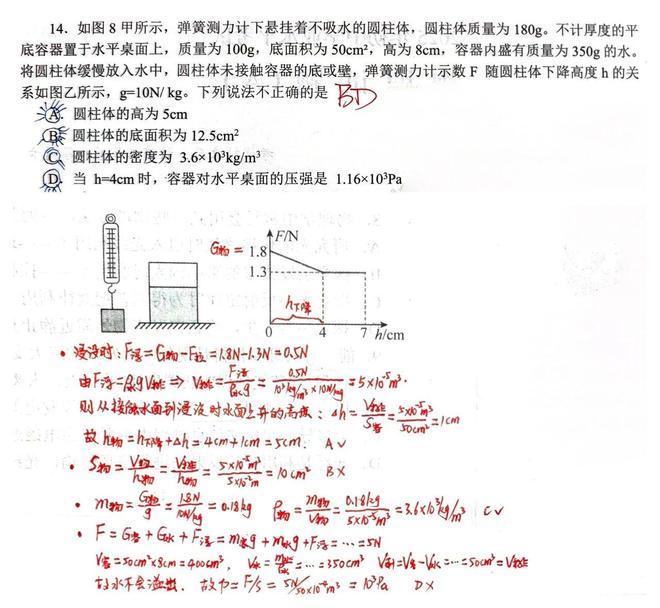 14．如图 8 甲所示，弹簧测力计下悬挂着不吸水的圆柱体，圆柱体质量为 180g。不计厚度的平
底容器置于水平桌面上，质量为 100g，底面积为 50cm²，高为 8cm，容器内盛有质量为 350g 的水。
将圆柱体缓慢放入水中，圆柱体未接触容器的底或壁，弹簧测力计示数 F 随圆柱体下降高度 h 的关
系如图乙所示，g=10N/ kg。下列说法不正确的是 BD
A．圆柱体的高为 5cm
B．圆柱体的底面积为 12.5cm²
C．圆柱体的密度为 3.6×10³kg/m³
D．当 h=4cm 时，容器对水平桌面的压强是 1.16×10³Pa
F/N
G物= 1.8
1.3
h下降
0 4 7 h/cm
• 浸没时：F浮=G物-F拉=1.8N-1.3N=0.5N
由F浮=ρ水gV排 ⇒ V排=F浮/ρ水g=0.5N/10³kg/m³×10N/kg=5×10⁻⁵m³
则从接触水面到浸没时水面上升的高度：Δh=V排/S容=5×10⁻⁵m³/50cm²=1cm
故 h物=h下降+Δh=4cm+1cm=5cm. A√
• S物=V物/h物=V排/h物=5×10⁻⁵m³/5×10⁻²m=10cm² B×
• m物=G物/g=1.8N/10N/kg=0.18kg ρ物=m物/V物=0.18kg/5×10⁻⁵m³=3.6×10³kg/m³ C√
• F=G容+G水+F浮=m容g+m水g+F浮=…=5N
V容=50cm²×8cm=400cm³, V水=m水/ρ水=…=350cm³ V剩=V容-V水=…=50cm³=V排
故水不会溢出. 故P=F/S=5N/50×10⁻⁴m²=10³Pa D×